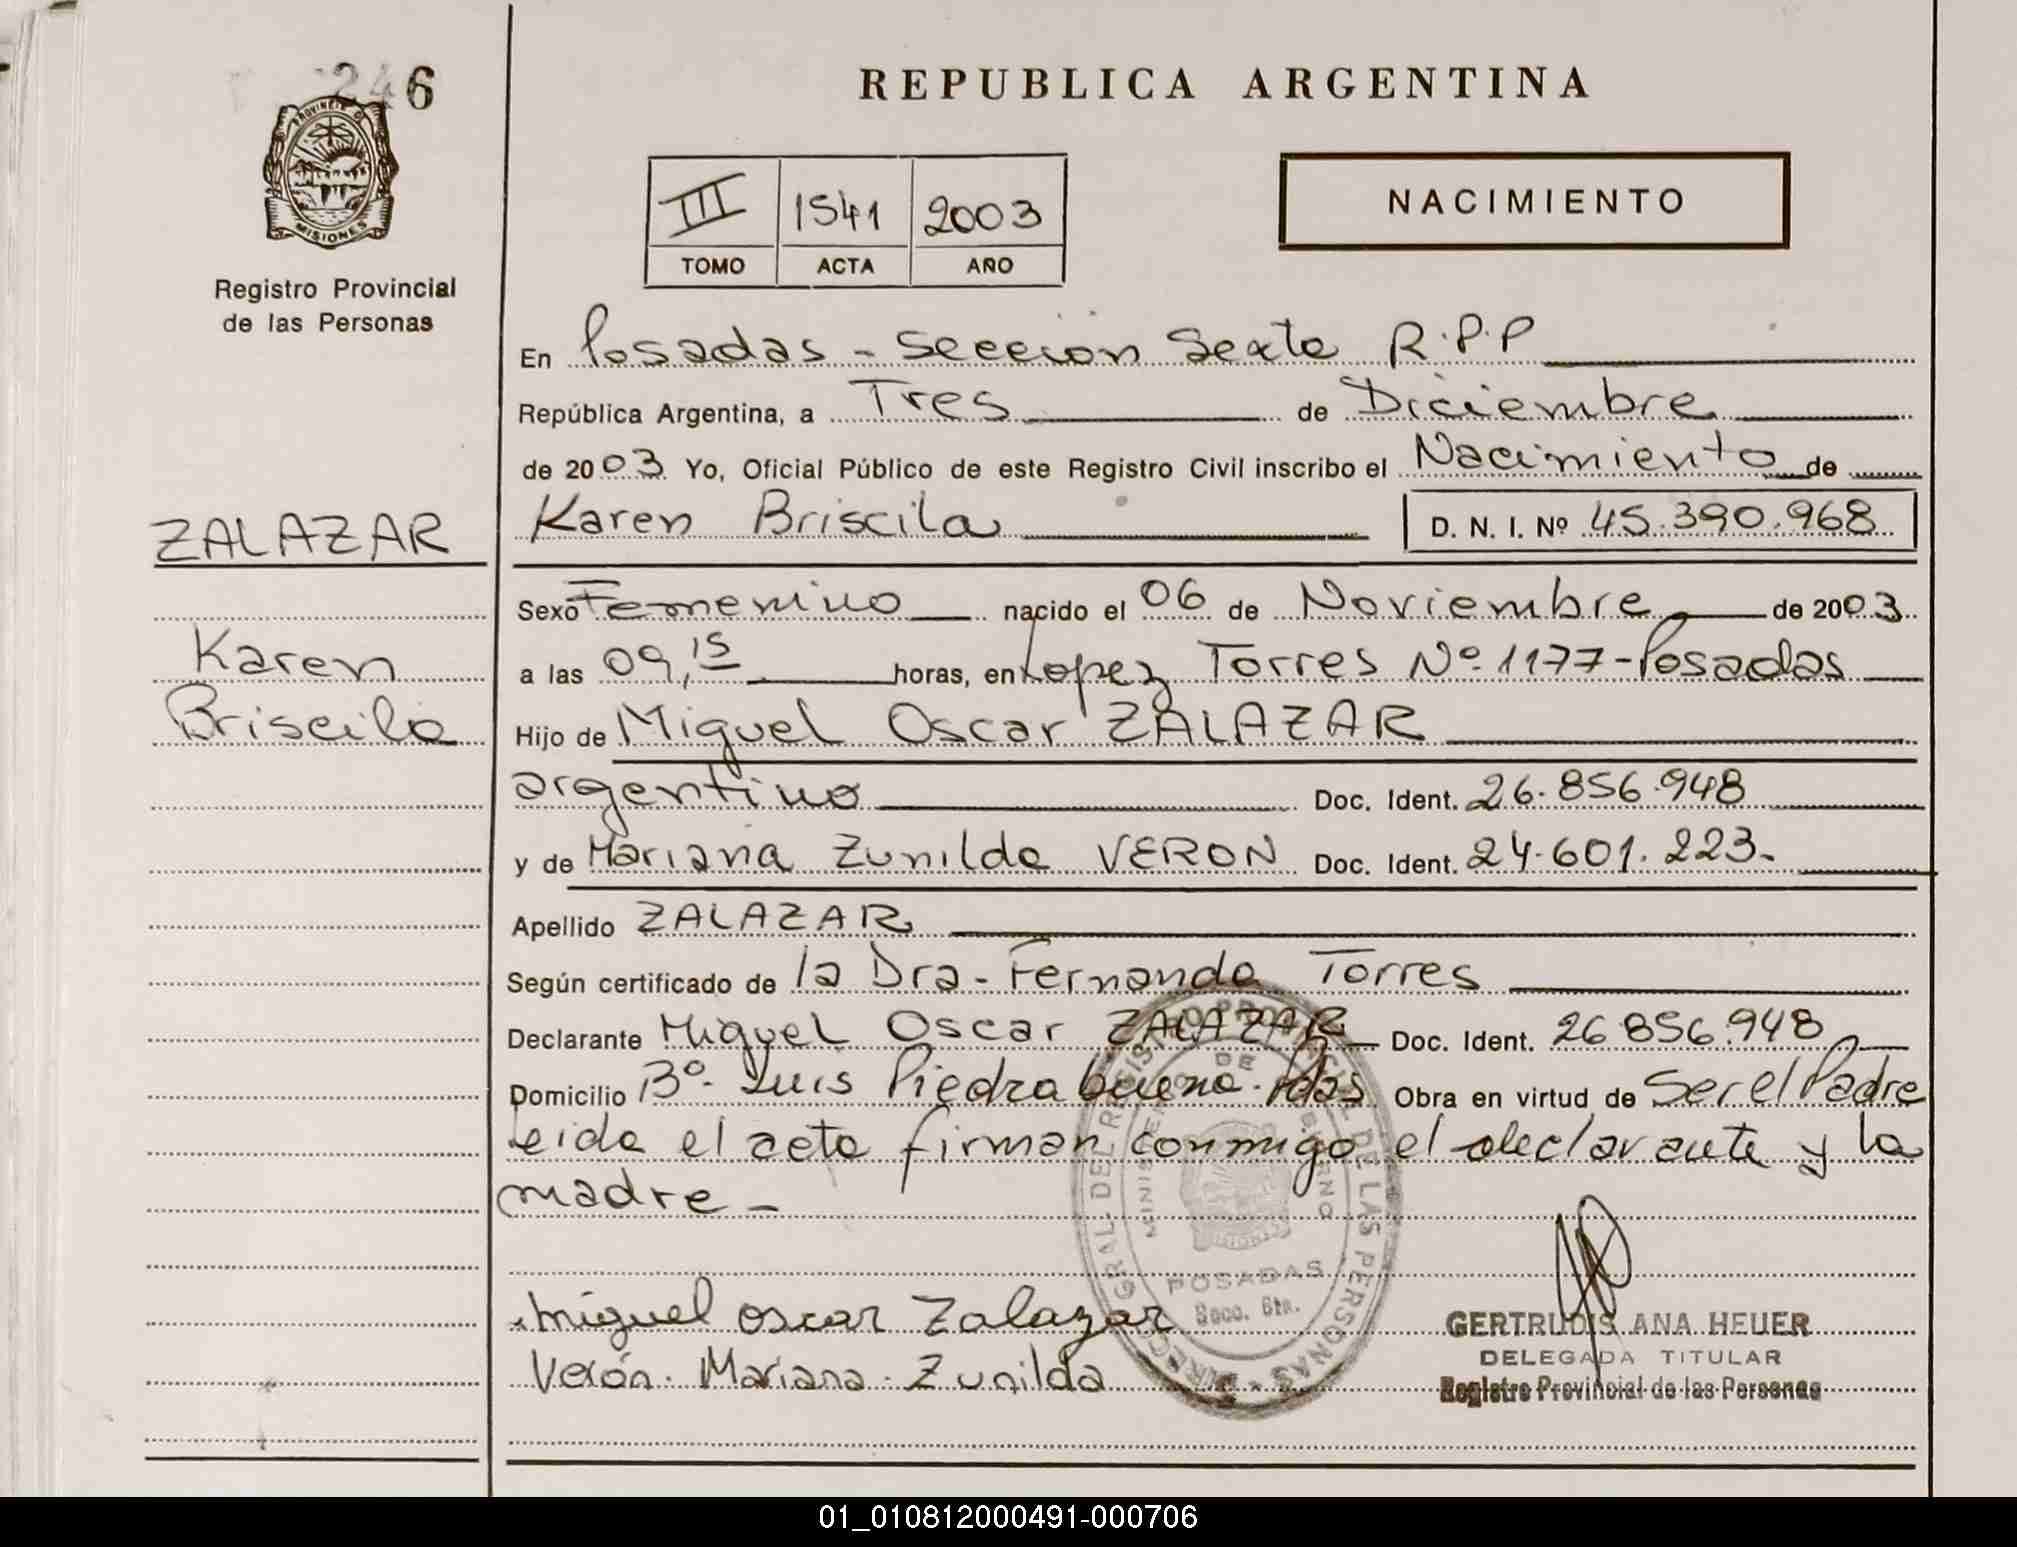 246
PROVINCIA DE
MISIONES
Registro Provincial
de las Personas
REPUBLICA ARGENTINA
III 1541 2003
TOMO ACTA AÑO
NACIMIENTO
En Posadas - Seccion Sexta R.P.P
República Argentina, a Tres de Diciembre
de 2003 Yo, Oficial Público de este Registro Civil inscribo el Nacimiento de
Karen Briscila D. N. I. Nº 45.390.968
ZALAZAR
Karen
Briscila
Sexo Femenino nacido el 06 de Noviembre de 2003
a las 09,15 horas, en Lopez Torres Nº 1177-Posadas
Hijo de Miguel Oscar ZALAZAR
argentino Doc. Ident. 26.856.948
y de Mariana Zunilda VERON Doc. Ident. 24.601.223.
Apellido ZALAZAR
Según certificado de la Dra- Fernanda Torres
Declarante Miguel Oscar ZALAZAR Doc. Ident. 26856.948
Domicilio Bº- Luis Piedra buena- Pdas Obra en virtud de Ser el Padre
Leida el acta firman conmigo el declarante y la
madre -
DIRECC. GRAL. DEL REGISTRO PROVINCIAL DE LAS PERSONAS
MINISTERIO DE GOBIERNO
POSADAS
Secc. 6ta.
Miguel oscar Zalazar
Verón. Mariana. Zunilda
GERTRUDIS ANA HEUER
DELEGADA TITULAR
Registro Provincial de las Personas
01_010812000491-000706